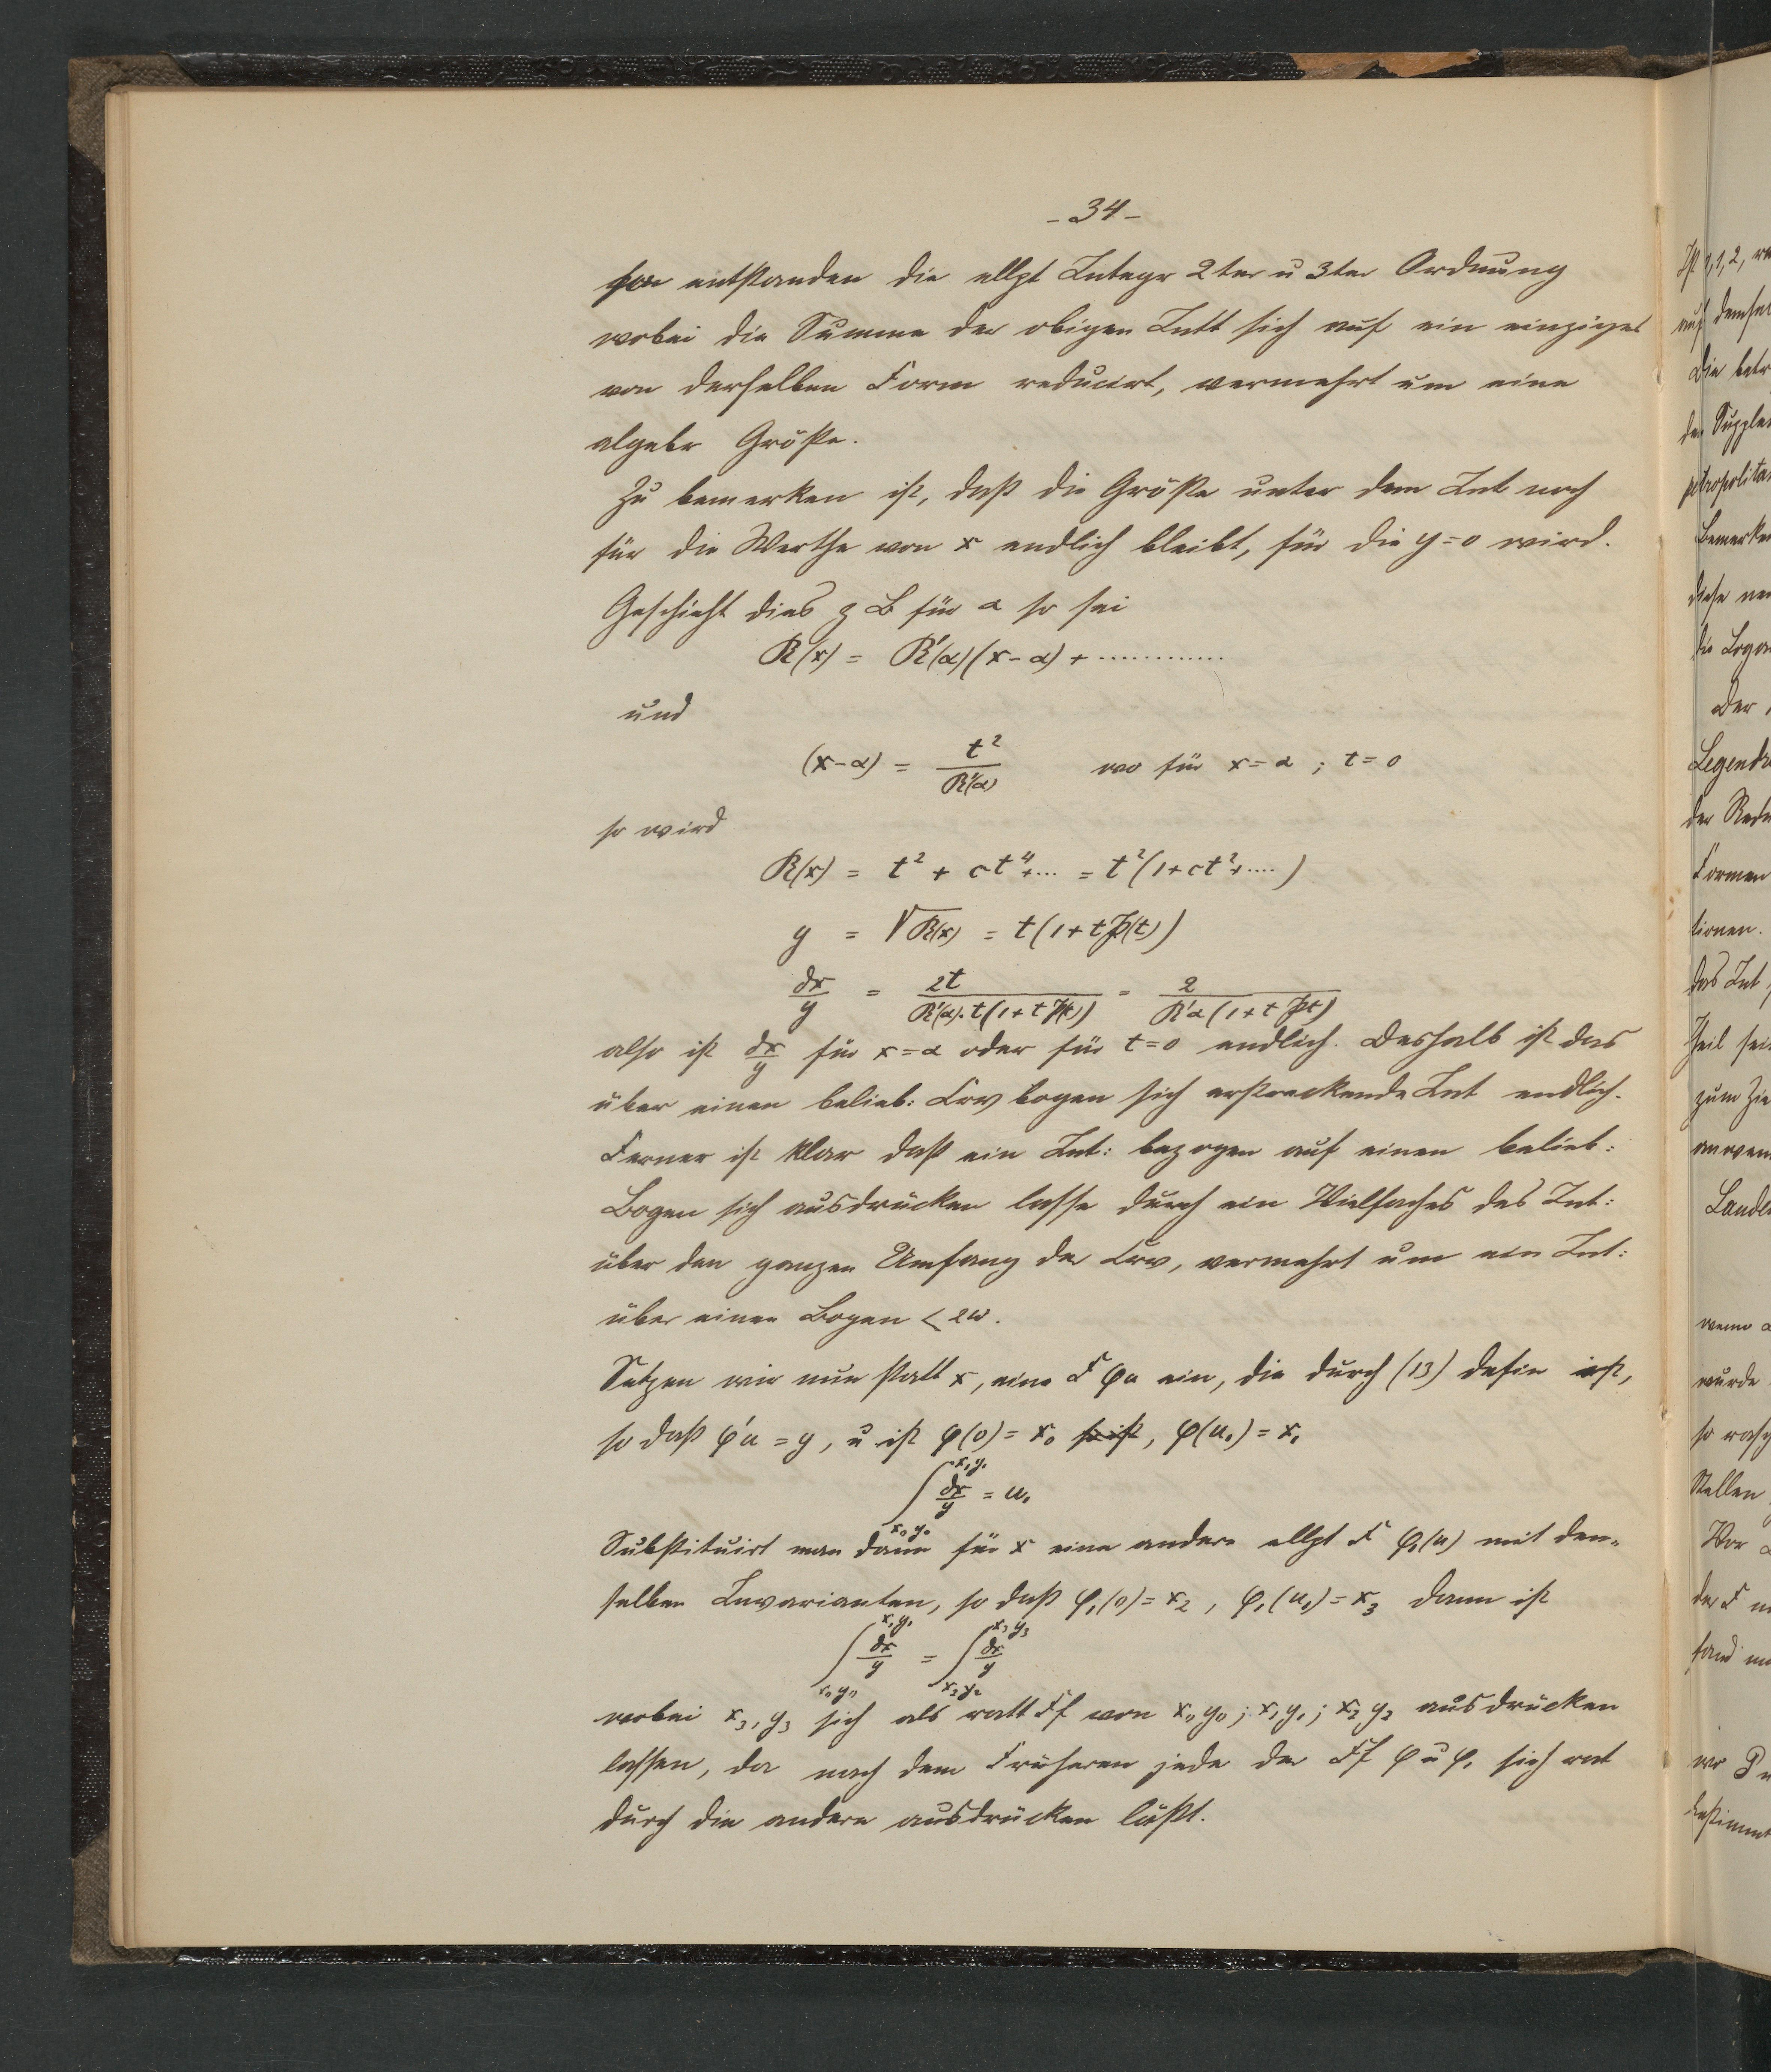 - 34 -
entstanden die ellpt Integr 2ter u 3ter Ordnung
wobei die Summe der obigen Intt sich auf ein einziges
von derselben Form reducirt, vermehrt um eine
algebr Größe.
Zu bemerken ist, daß die Größe unter dem Int noch
für die Werthe von x endlich bleibt, für die y=0 wird.
Geschieht dies z B für α so sei
R(x) = R'(α)(x-α) + ............
und
(x-α) = t²/R'(α) wo für x=α ; t=0
so wird
R(x) = t² + ct⁴+... = t²(1+ct²+....)
y = √R(x) = t(1+t𝔓(t))
dx/y = 2t/R'(α).t(1+t𝔓(t)) = 2/R'α(1+t𝔓t)
also ist dx/y für x=α oder für t=0 endlich. Deshalb ist das
über einen belieb: Crv bogen sich erstreckende Int endlich.
Ferner ist klar daß ein Int: bezogen auf einen belieb:
Bogen sich ausdrücken lasse durch ein Vielfaches des Int:
über den ganzen Umfang der Crv, vermehrt um ein Int:
über einen Bogen < 2ω.
Setzen wir nun statt x, eine F φu ein, die durch (13) defin ist,
so daß φ'u = y, u ist φ(0) = x₀, φ(u₁) = x₁
∫_{x₀y₀}^{x₁y₁} dx/y = u₁
Substituirt man dann für x eine andere ellpt F φ₁(u) mit den-
selben Invarianten, so daß φ₁(0) = x₂, φ₁(u₁) = x₃ dann ist
∫_{x₀y₀}^{x₁y₁} dx/y = ∫_{x₂y₂}^{x₃y₃} dx/y
wobei x₃, y₃ sich als ratt Ff von x₀y₀; x₁y₁; x₂y₂ ausdrücken
lassen, da nach dem Früheren jede der Ff φ u φ₁ sich rat
durch die andere ausdrücken läßt.